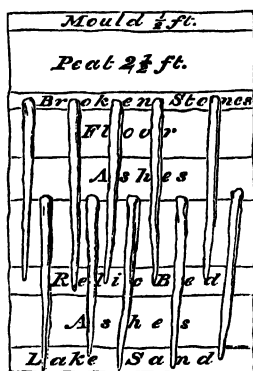 Mould ½ ft.
Peat 2½ ft.
Broken Stones
Floor
Ashes
Relic Bed
Ashes
Lake Sand